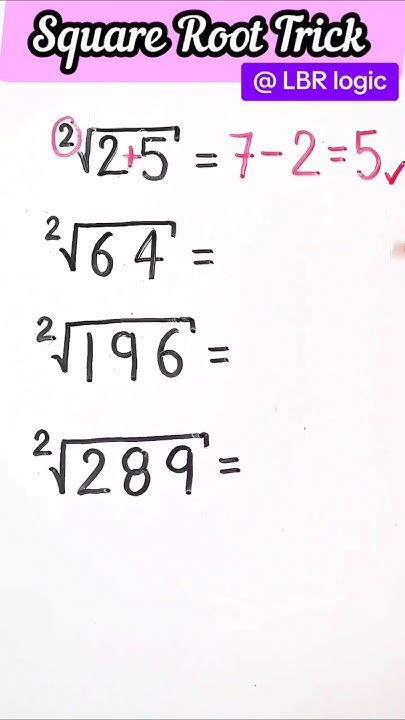 Square Root Trick
@ LBR logic
²√2+5 = 7-2=5✓
²√64 =
²√196 =
²√289 =